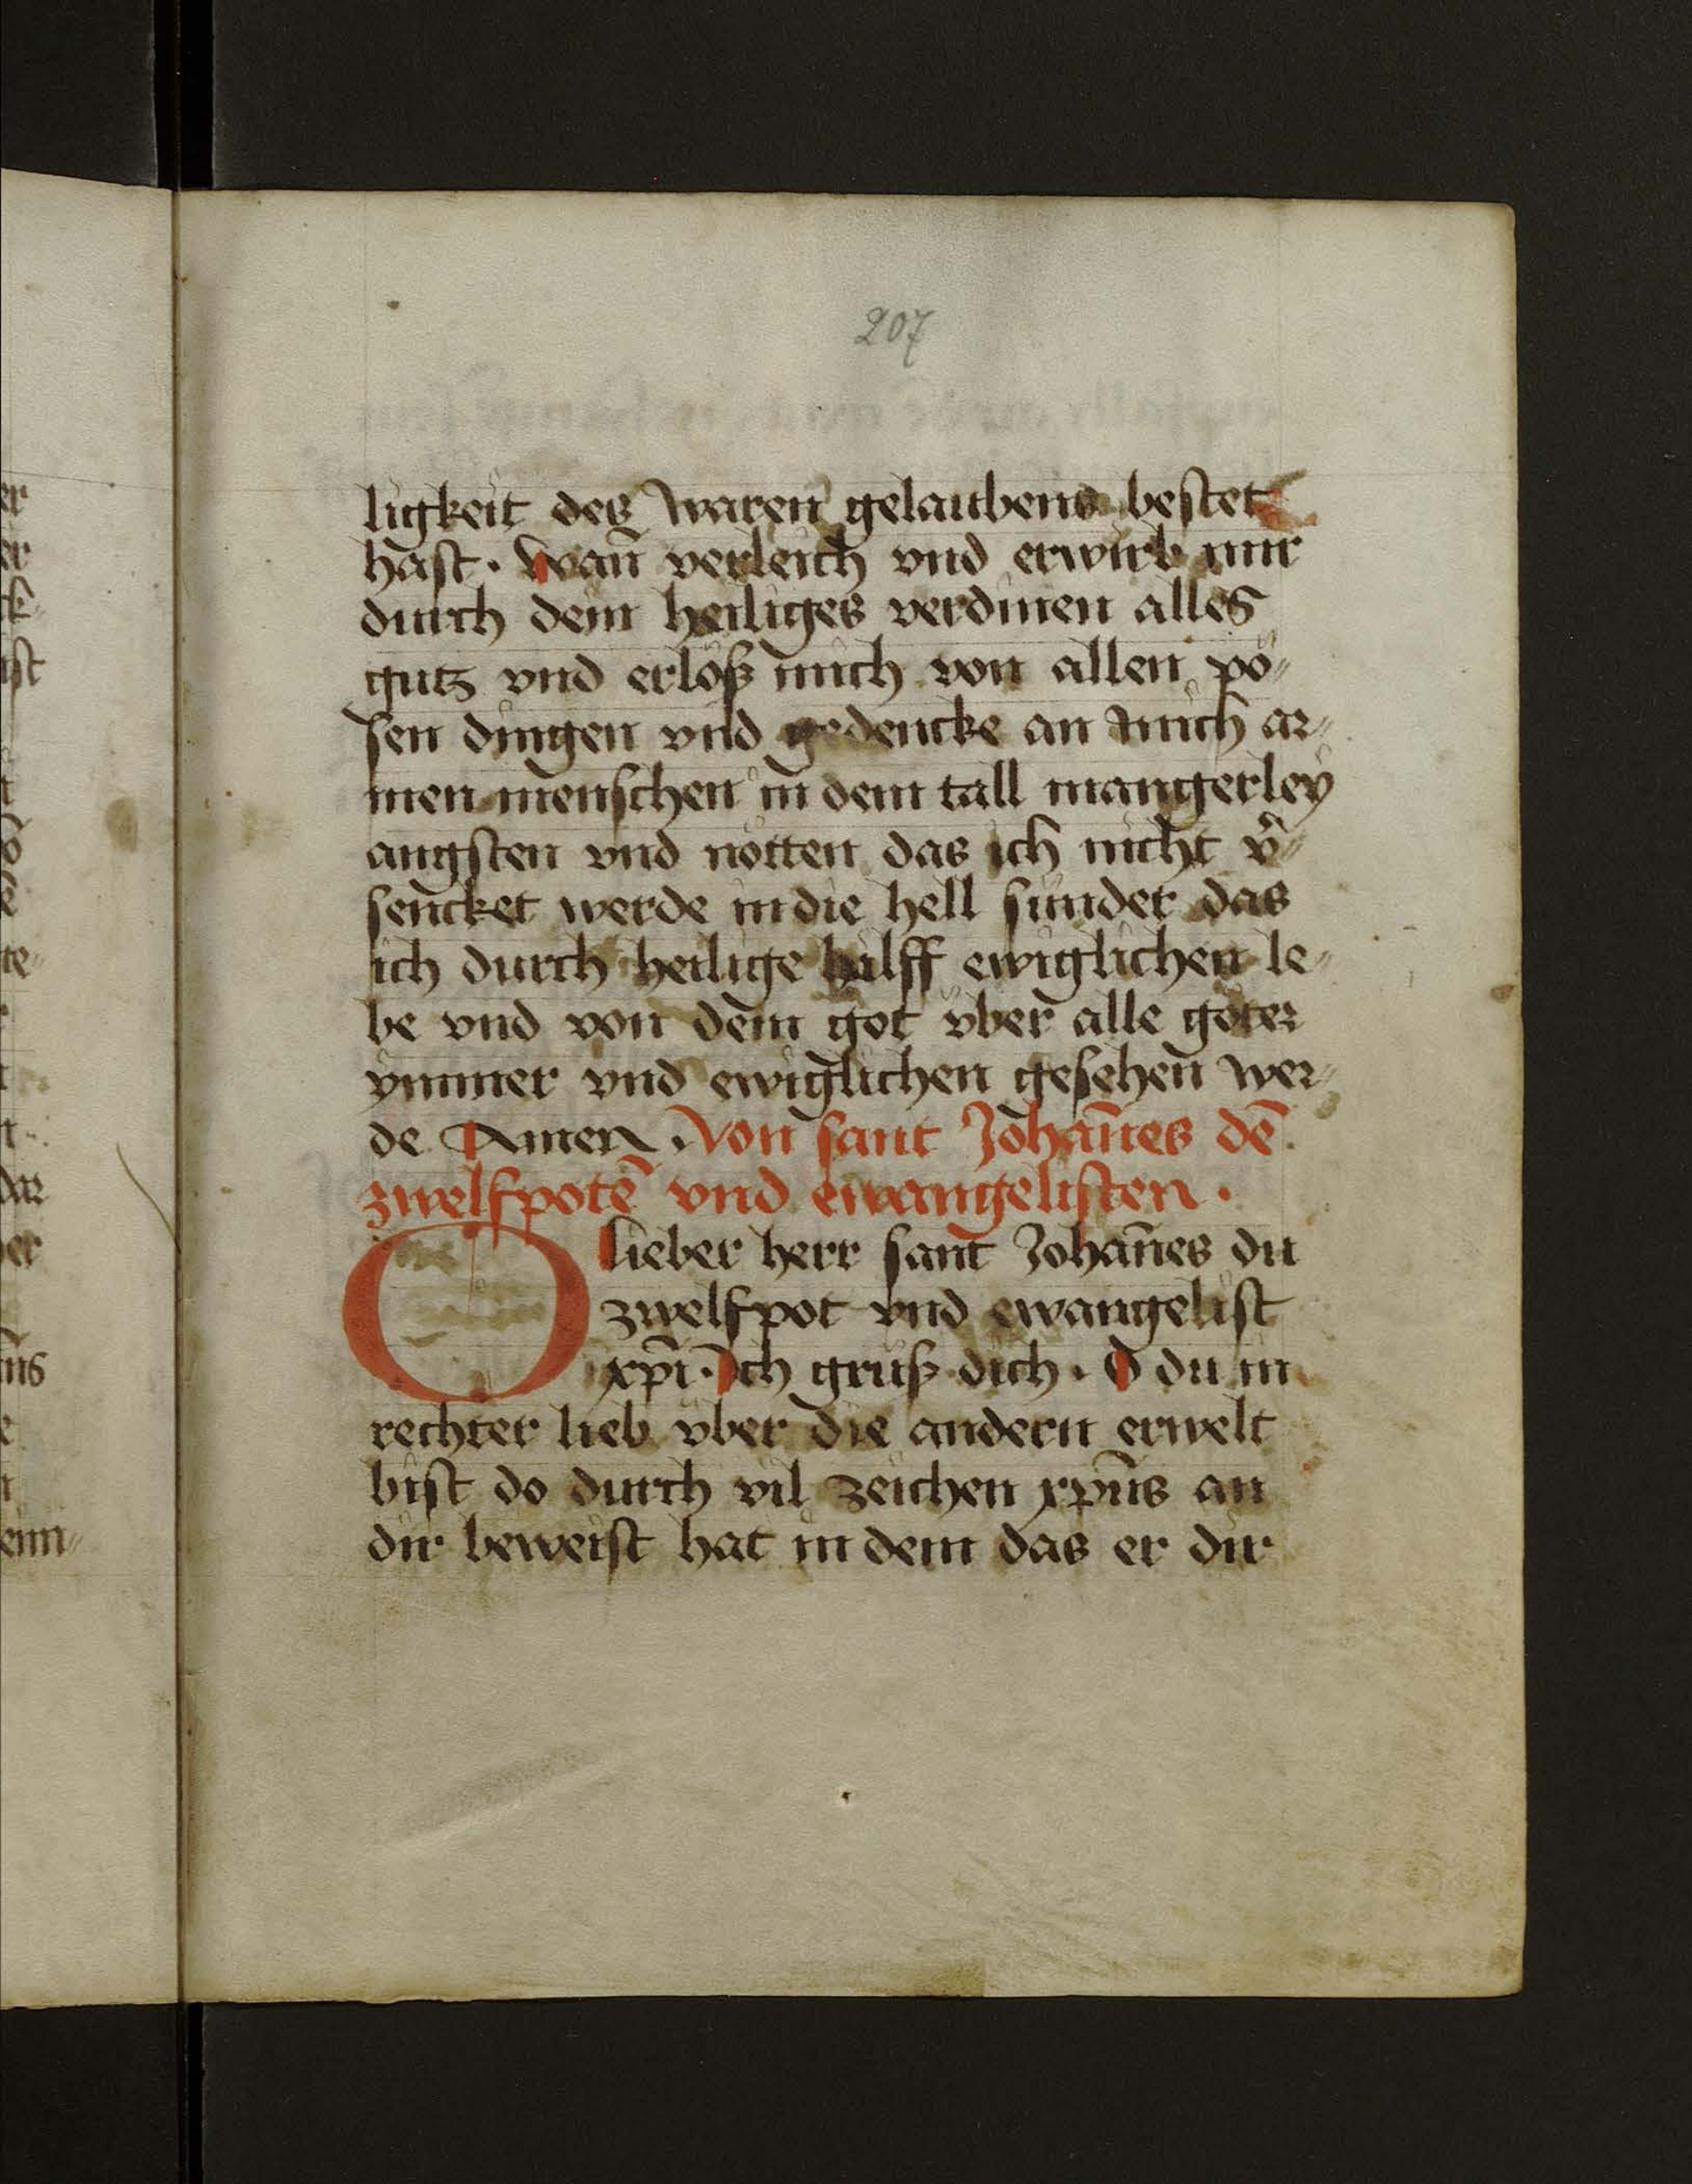 207
ligkeit des waren gelaubens bestet
hast · Wan̄ verleich vnd erwirb mir
durch dein heiliges verdinen alles
gutz vnd erlöß mich von allen pö⸗
sen dingen vnd gedencke an mich ar⸗
men menschen in dem tall mangerley
angsten vnd nötten das ich nicht v̄⸗
sencket werde in die hell sunder das
ich durch heilige hilff ewiglichen le⸗
be vnd von dem got vber alle göter
ymmer vnd ewiglichen gesehen wer⸗
de Amen · Von sant Johan̄es dē
zwelfpotē vnd ewangelisten ·
O lieber herr sant Johan̄es du
zwelfpot vnd ewangelist
xp̄i · Ich grüß dich · O du in
rechter lieb vber die andern erwelt
bist do durch vil zeichen xp̄us an
dir beweist hat in dem das er dir